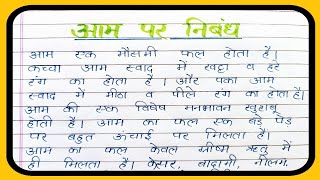 आम पर निबंध
आम एक मौसमी फल होता है।
कच्चा आम स्वाद में खट्टा व हरे
रंग का होता है। और पका आम
स्वाद में मीठा व पीले रंग का होता है।
आम की एक विशेष मनभावन खुशबू
होती है। आम का फल एक बड़े पेड़
पर बहुत ऊंचाई पर मिलता है।
आम का फल केवल ग्रीष्म ऋतु में
ही मिलता है। केसर, बादामी, नीलम,